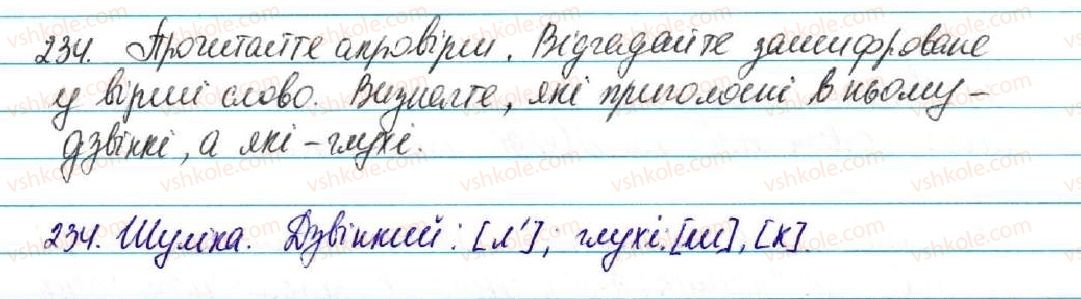 234. Прочитайте акровірш. Відгадайте зашифроване
у вірші слово. Визначте, які приголосні в ньому –
дзвінкі, а які – глухі.
234. Шуліка. Дзвінкий: [л′]; глухі: [ш], [к].